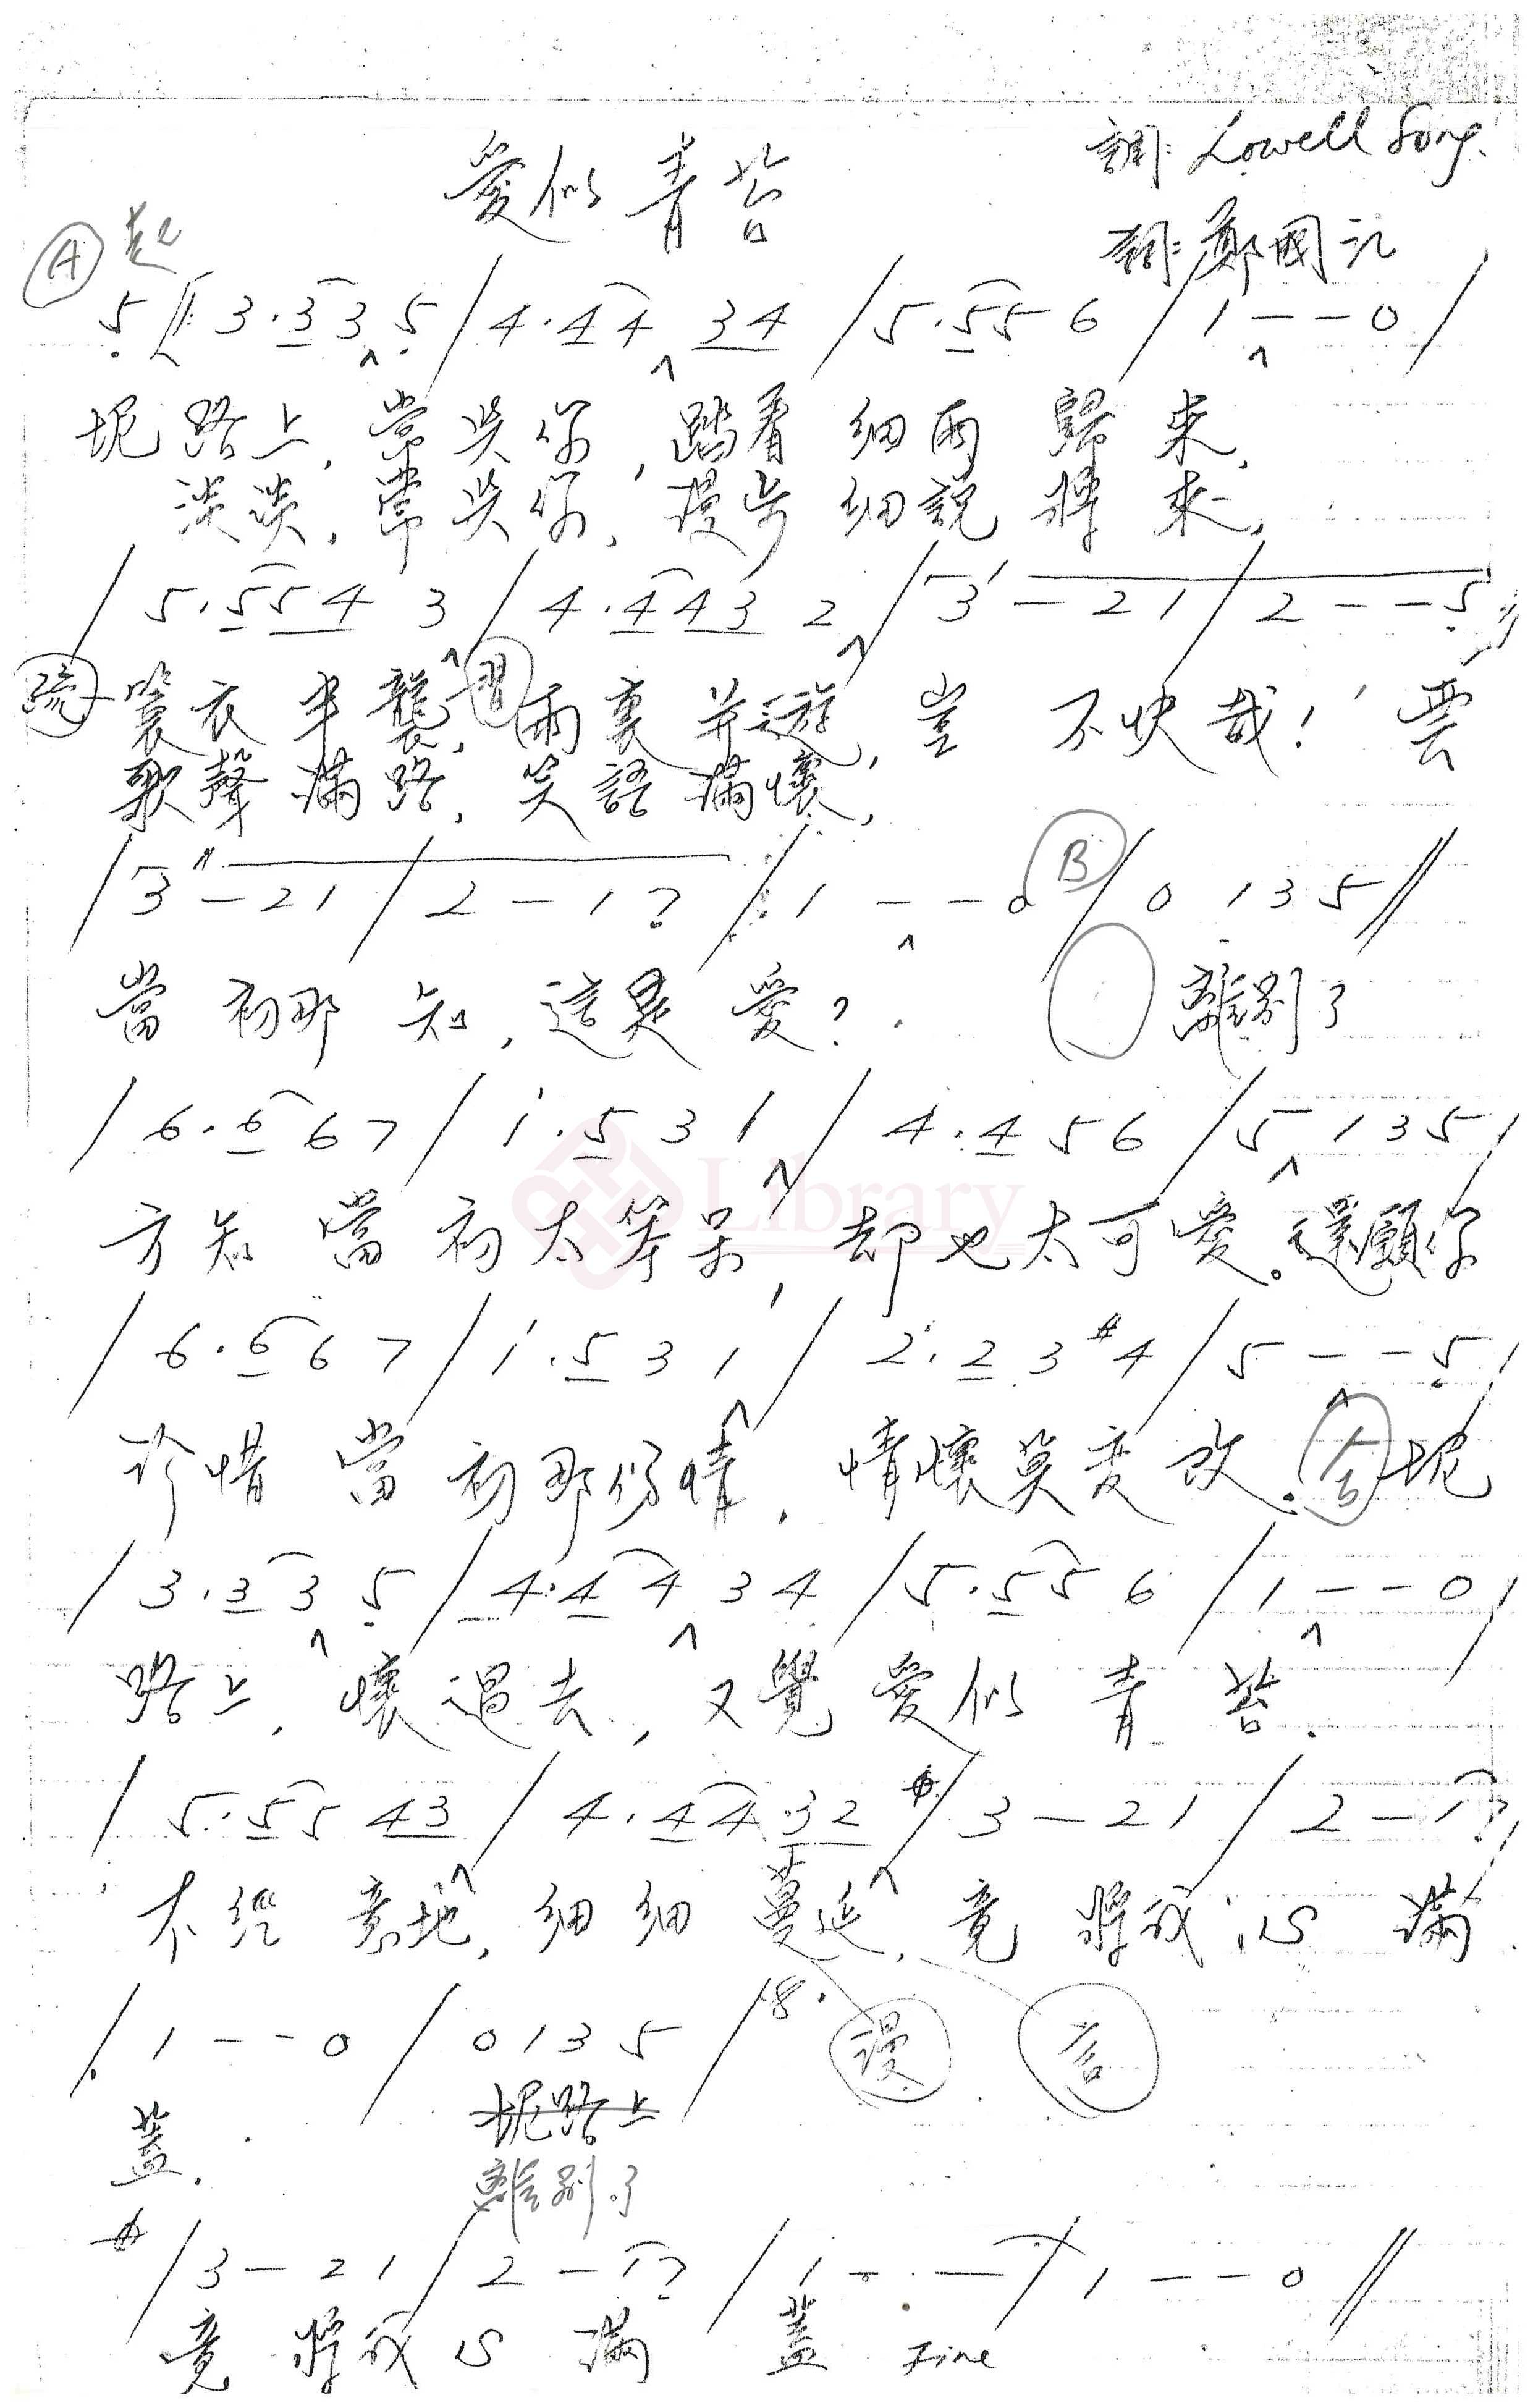 愛似青苔
調: Lowell Song.
詞: 鄭國江
Ⓐ 起
5 ‖: 3 . 3 3 5 / 4 . 4 4 3 4 / 5 . 5 5 6 / 1 - - 0 /
坭路上, 常與你, 踏着細雨歸來,
淡淡, 常與你, 漫步細說將來,
/ 5 . 5 5 4 3 / 4 . 4 4 3 2 / 3 - 2 1 / 2 - - 5 :‖
簑衣半襲, 雨裏并遊, 豈不快哉! 雲
歌聲滿路, 笑語滿懷,
/ 3 - 2 1 / 2 - 1 7 / 1 - - 0 / 0 1 3 5 //
Ⓑ
當初那知, 這是愛? 離別了
/ 6 . 6 6 7 / 1 . 5 3 1 / 4 . 4 5 6 / 5 1 3 5 /
方知當初太笨呆, 却也太可愛。還願你
/ 6 . 6 6 7 / 1 . 5 3 1 / 2 . 2 3 #4 / 5 - - 5 /
珍惜當初那份情, 情懷莫變改. 合 坭
/ 3 . 3 3 5 / 4 . 4 4 3 4 / 5 . 5 5 6 / 1 - - 0 /
路上, 懷過去, 又覺愛似青苔.
/ 5 . 5 5 4 3 / 4 . 4 4 3 2 / 3 - 2 1 / 2 - 1 7 /
不經意地, 細細蔓延, 竟將我心滿
/ 1 - - 0 / 0 1 3 5 /
漫 言
坭路上
蓋.
離別了
/ 3 - 2 1 / 2 - 1 7 / 1 - - - / 1 - - 0 //
竟將我心滿蓋 Fine
Library